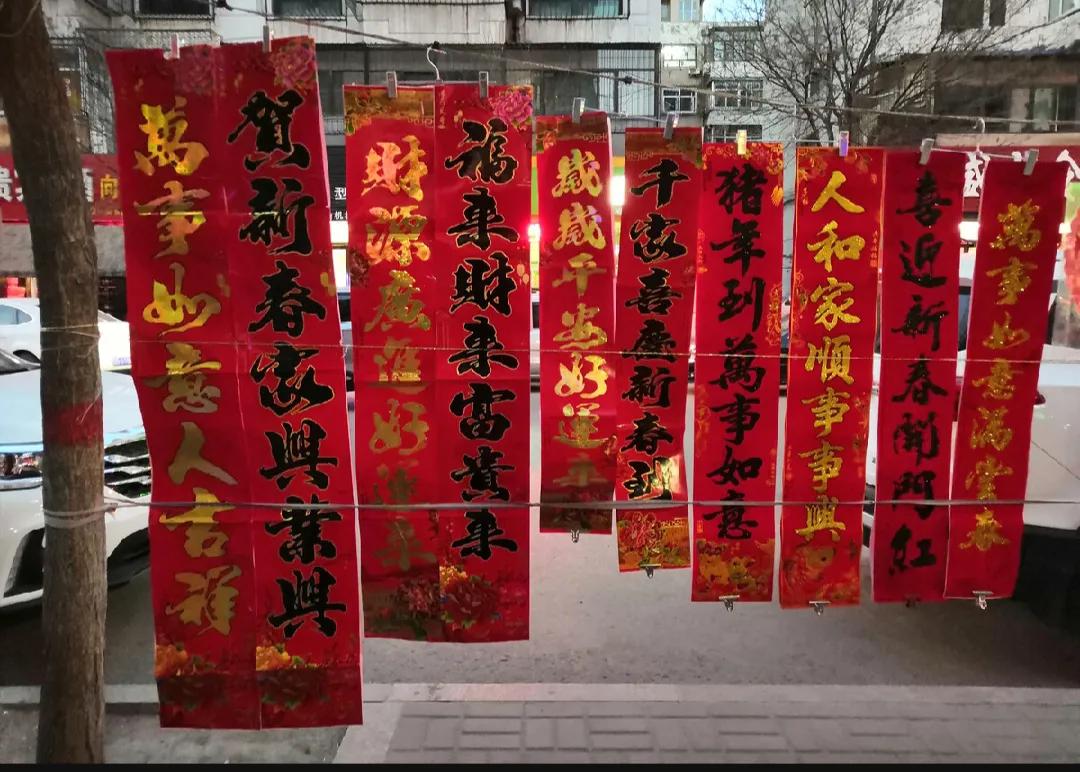 萬事如意滿堂春
喜迎新春開門紅
人和家順事事興
猪年到萬事如意
千家喜慶新春到
歲歲平安好運來
福來財來富貴來
財源廣進好運來
賀新春家興業興
萬事如意人吉祥